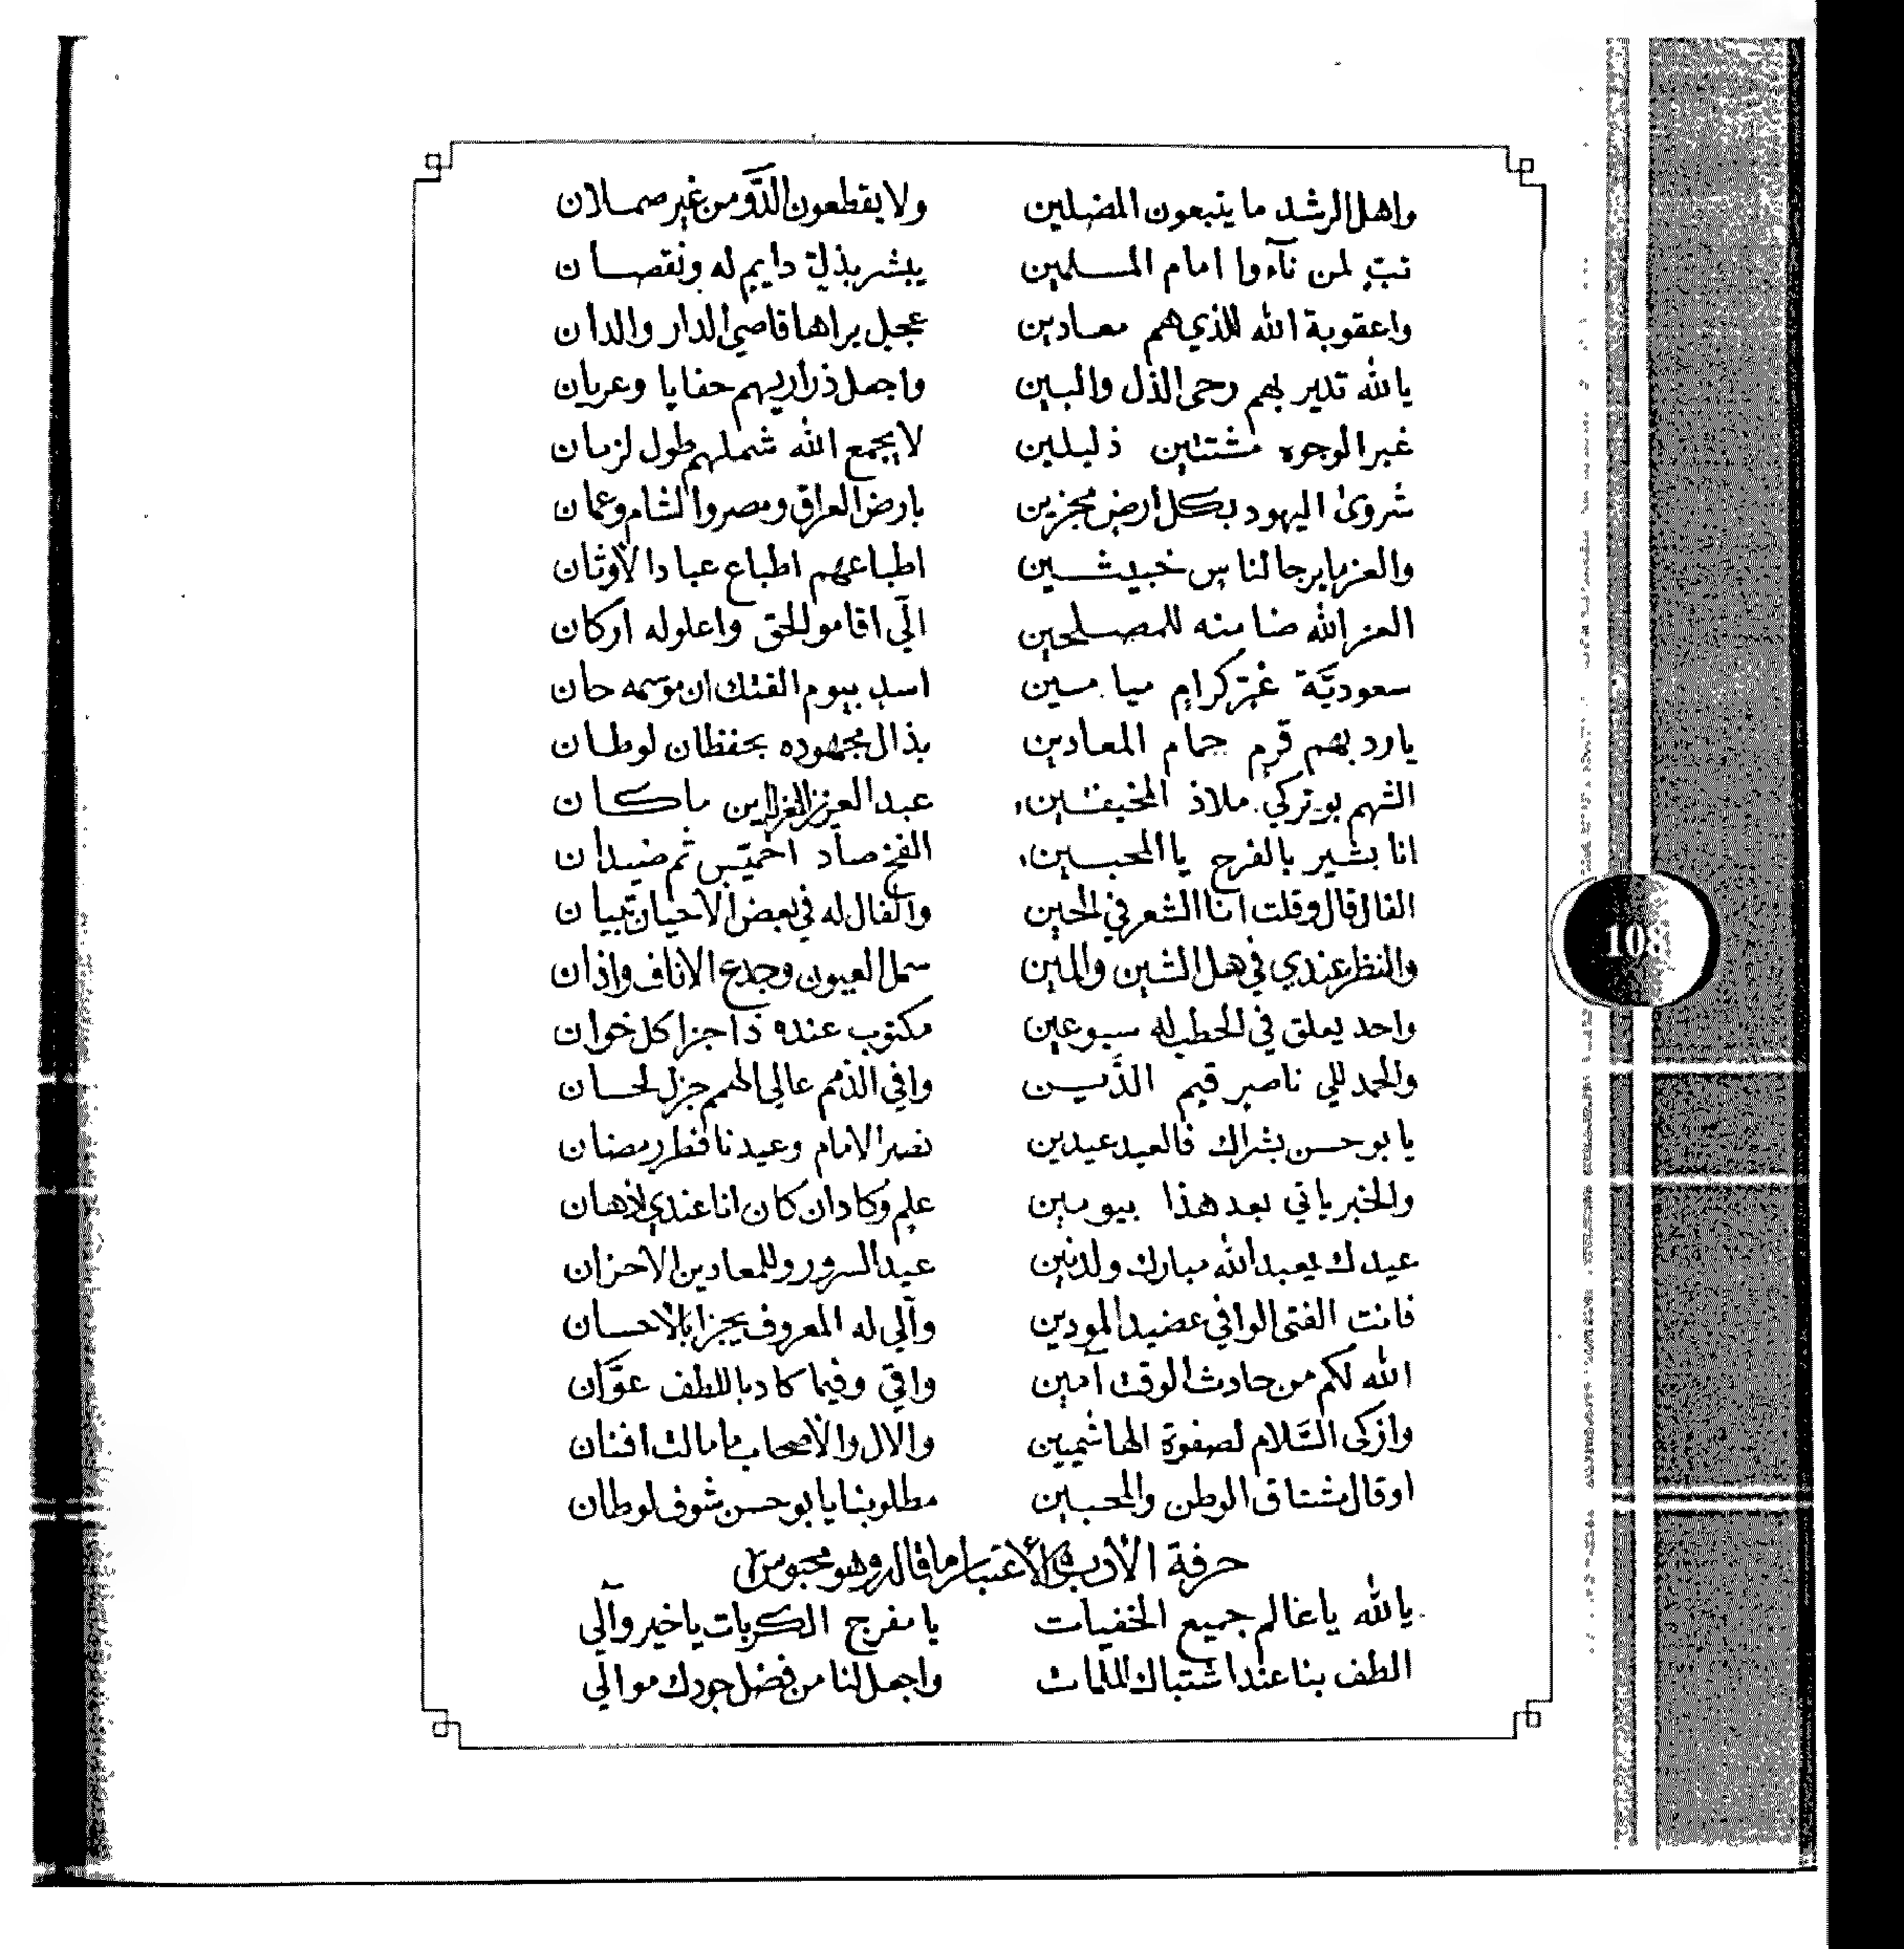 واهل الرشد ما يتبعون المضلين ولا يقطعون الدَّو من غير صملان
تبٍ لمن نآءوا امام المسلمين يبشر بذلٍ دايمٍ له ونقصان
واعقوبة الله للذي هم معادين عجلٍ يراها قاصي الدار والدان
يالله تدير بهم رحى الذل والبين واجعل ذراريهم حفايا وعريان
غبر الوجوه مشتتين ذليلين لا يجمع الله شملهم طول لزمان
شروى اليهود بكل ارضٍ مجزين بارض العراق ومصر والشام وعمان
والعز ما يرجا لناسٍ خبيثين اطباعهم اطباع عباد الاوثان
العز الله ضامنه للمصلحين الّي اقامو للحق واعلوله اركان
سعوديَّة غرٍ كرامٍ ميامين اسدٍ بيوم الفتك ان موسمه حان
يارد بهم قرمٍ حمام المعادين بذال مجهوده بحفظان لوطان
الشهم بو تركي ملاذ المخيفين عبدالعزيز العز الين ماكان
انا بشير بالفرج يا المحبين الفخ صاد اخميّس ثم ضيدان
الفال قال وقلت انا الشعر في الحين والفال له في بعض الاحيان تبيان
والنظر عندي في هل الشين والمين سمل العيون وجدع الاناف واذان
واحد يعلق في الحطب له سبوعين مكتوب عنده ذا جزا كل خوان
والحمد للي ناصرٍ قيم الدّين وافي الذمم عالي الهمم جزل لحسان
يا بو حسن بشراك فالعيد عيدين نصر الامام وعيدنا فطر رمضان
والخبر ياتي بعد هذا بيومين علمٍ وكادان كان انا عندي اذهان
عيدك يعبدالله مبارك ولدنين عيد السرور وللمعادين الاحزان
فانت الفتى الوافي عضيد المودين والّي له المعروف يجزا بالاحسان
الله لكم من حادث الوقت آمين واقي وفيما كاد باللطف عوَّان
وازكى السَّلام لصفوة الهاشميين والال والاصحاب ما مالت افنان
او قال مشتاق الوطن والمحبين مطلوبنا يا بو حسن شوف لوطان
حرفة الأدب والأعتبار ما قاله وهو محبوس
يالله يا عالم جميع الخفيات يا مفرج الكربات يا خير والّي
الطف بنا عند اشتباك الملمات واجعل لنا من فضل جودك موالي
108